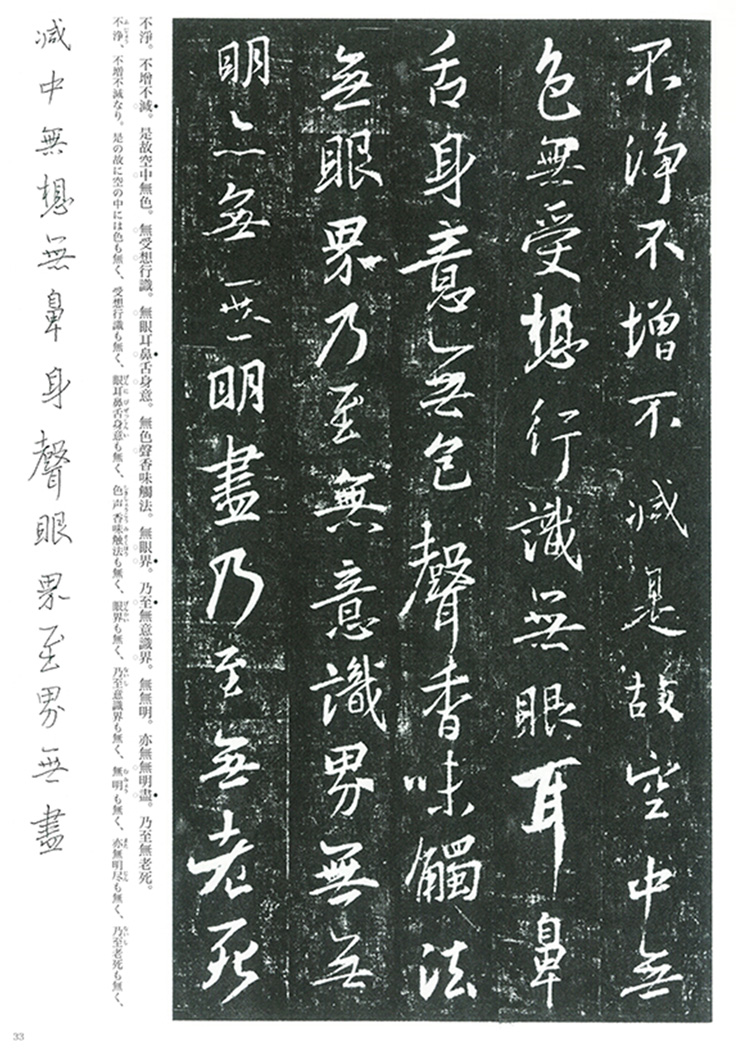 不淨不增不減是故空中無
色無受想行識無眼耳鼻
舌身意無色聲香味觸法
無眼界乃至無意識界無無
明亦無無明盡乃至無老死
不淨。不增不減。是故空中無色。無受想行識。無眼耳鼻舌身意。無色聲香味觸法。無眼界。乃至無意識界。無無明。亦無無明盡。乃至無老死。
不浄、不増不減なり。是の故に空の中には色も無く、受想行識も無く、眼耳鼻舌身意も無く、色声香味触法も無く、眼界も無く、乃至意識界も無く、無明も無く、亦無明尽も無く、乃至老死も無く、
減中無想無鼻身聲眼界至界無盡
33